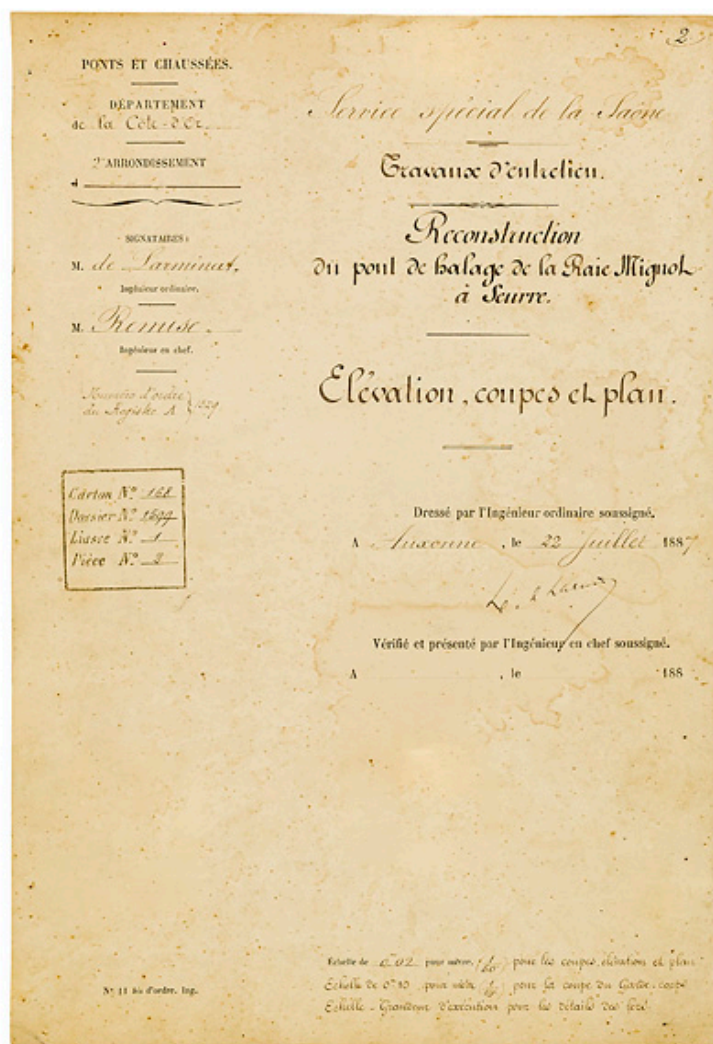 2
PONTS ET CHAUSSÉES.
DÉPARTEMENT
de la Côte-d'Or
2e ARRONDISSEMENT
d
SIGNATAIRES :
M. de Larminat.
Ingénieur ordinaire.
M. Remise.
Ingénieur en chef.
Numéro d'ordre
du Registre A
Carton N° 168
Dossier N° 1599
Liasse N° 1
Pièce N° 2
N° 11 bis d'ordre. Ing.
Service spécial de la Saône
Travaux d'entretien.
Reconstruction
du pont de halage de la Raie Mignot
à Seurre.
Elévation, coupes et plan.
Dressé par l'Ingénieur ordinaire soussigné.
A Auxonne, le 22 juillet 1887
Vérifié et présenté par l'Ingénieur en chef soussigné.
A , le 188
Échelle de 0m02 pour mètre. pour les coupes, élévation et plan
Echelle de 0m10 pour mètre pour la coupe du Garde-corps
Echelle - Grandeur d'exécution pour les détails des fers